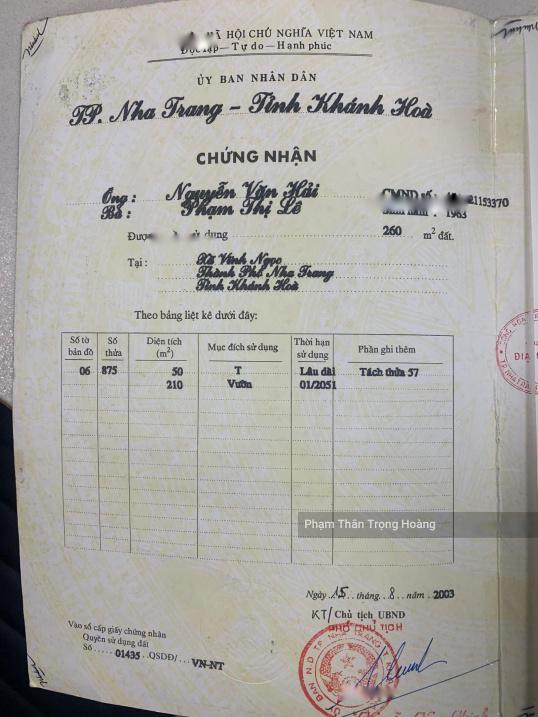 XÃ HỘI CHỦ NGHĨA VIỆT NAM
Độc lập — Tự do — Hạnh phúc
ỦY BAN NHÂN DÂN
TP. Nha Trang - Tỉnh Khánh Hoà
CHỨNG NHẬN
Ông : Nguyễn Văn Hải CMND số : 21153370
Bà : Phạm Thị Lê 1963
Được sử dụng 260 m² đất.
Tại : Xã Vĩnh Ngọc
Thành Phố Nha Trang
Tỉnh Khánh Hoà
Theo bảng liệt kê dưới đây:
Số tờ bản đồ Số thửa Diện tích (m²) Mục đích sử dụng Thời hạn sử dụng Phần ghi thêm
06 875 50 T Lâu dài Tách thửa 57
210 Vườn 01/2051
Phạm Thân Trọng Hoàng
Ngày 15 tháng 8 năm 2003
KT/ Chủ tịch UBND
PHÓ CHỦ TỊCH
Vào sổ cấp giấy chứng nhận
Quyền sử dụng đất
Số 01435 QSDĐ/ VN-NT